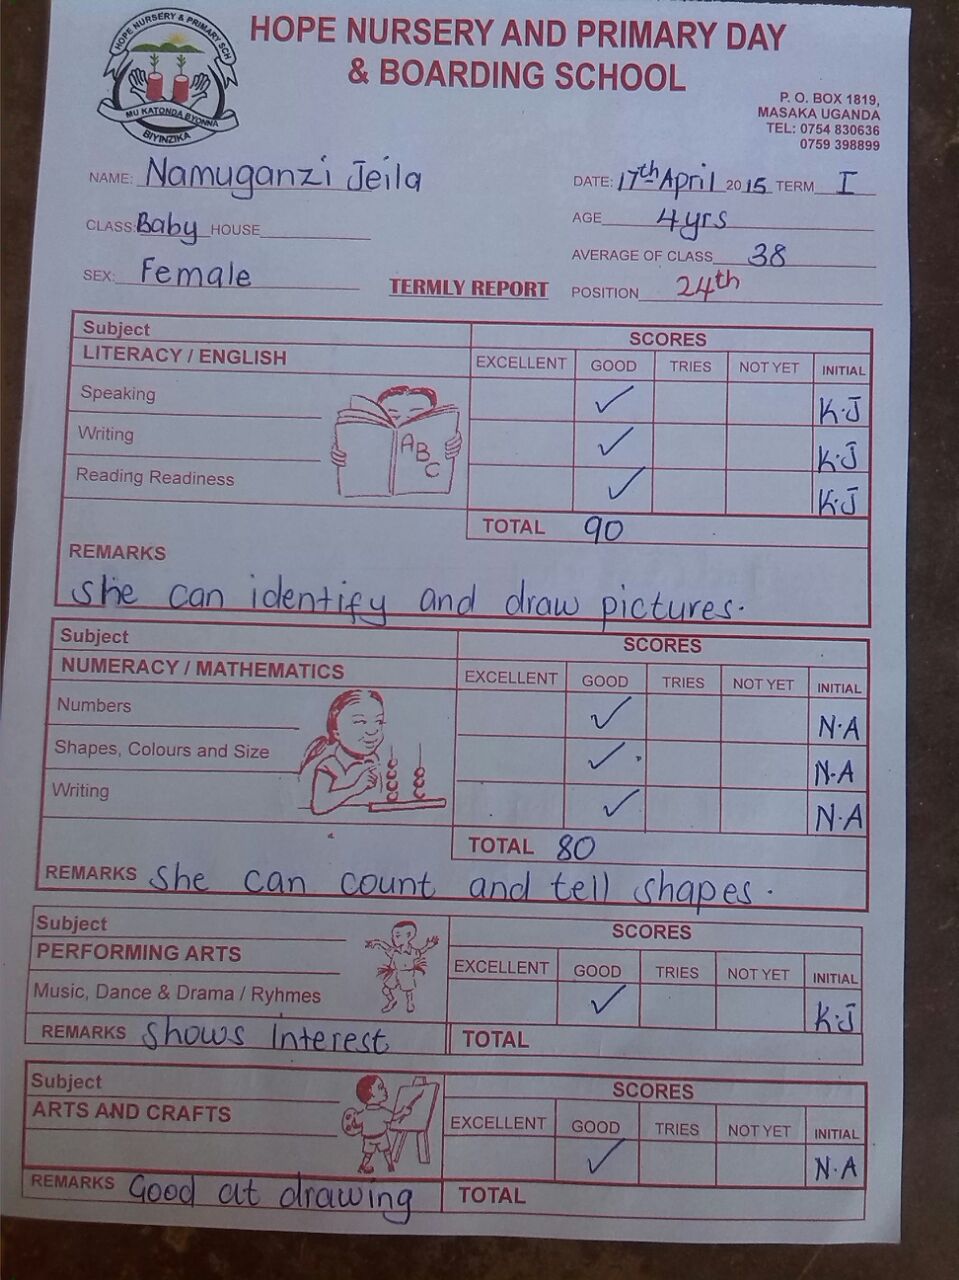 HOPE NURSERY & PRIMARY SCH
MU KATONDA BYONNA
BIYINZIKA
HOPE NURSERY AND PRIMARY DAY
& BOARDING SCHOOL
P. O. BOX 1819,
MASAKA UGANDA
TEL: 0754 830636
0759 398899
NAME: Namuganzi Jeila
DATE: 17th April 2015 TERM I
CLASS: Baby HOUSE
AGE 4yrs
AVERAGE OF CLASS 38
SEX: Female
TERMLY REPORT
POSITION 24th
Subject SCORES
LITERACY / ENGLISH EXCELLENT GOOD TRIES NOT YET INITIAL
Speaking ✓ K.J
Writing ✓ K.J
Reading Readiness ✓ K.J
A B C
TOTAL 90
REMARKS
She can identify and draw pictures.
Subject SCORES
NUMERACY / MATHEMATICS EXCELLENT GOOD TRIES NOT YET INITIAL
Numbers ✓ N.A
Shapes, Colours and Size ✓ N.A
Writing ✓ N.A
TOTAL 80
REMARKS She can count and tell shapes.
Subject SCORES
PERFORMING ARTS EXCELLENT GOOD TRIES NOT YET INITIAL
Music, Dance & Drama / Ryhmes ✓ K.J
REMARKS Shows Interest TOTAL
Subject SCORES
ARTS AND CRAFTS EXCELLENT GOOD TRIES NOT YET INITIAL
✓ N.A
REMARKS Good at drawing TOTAL